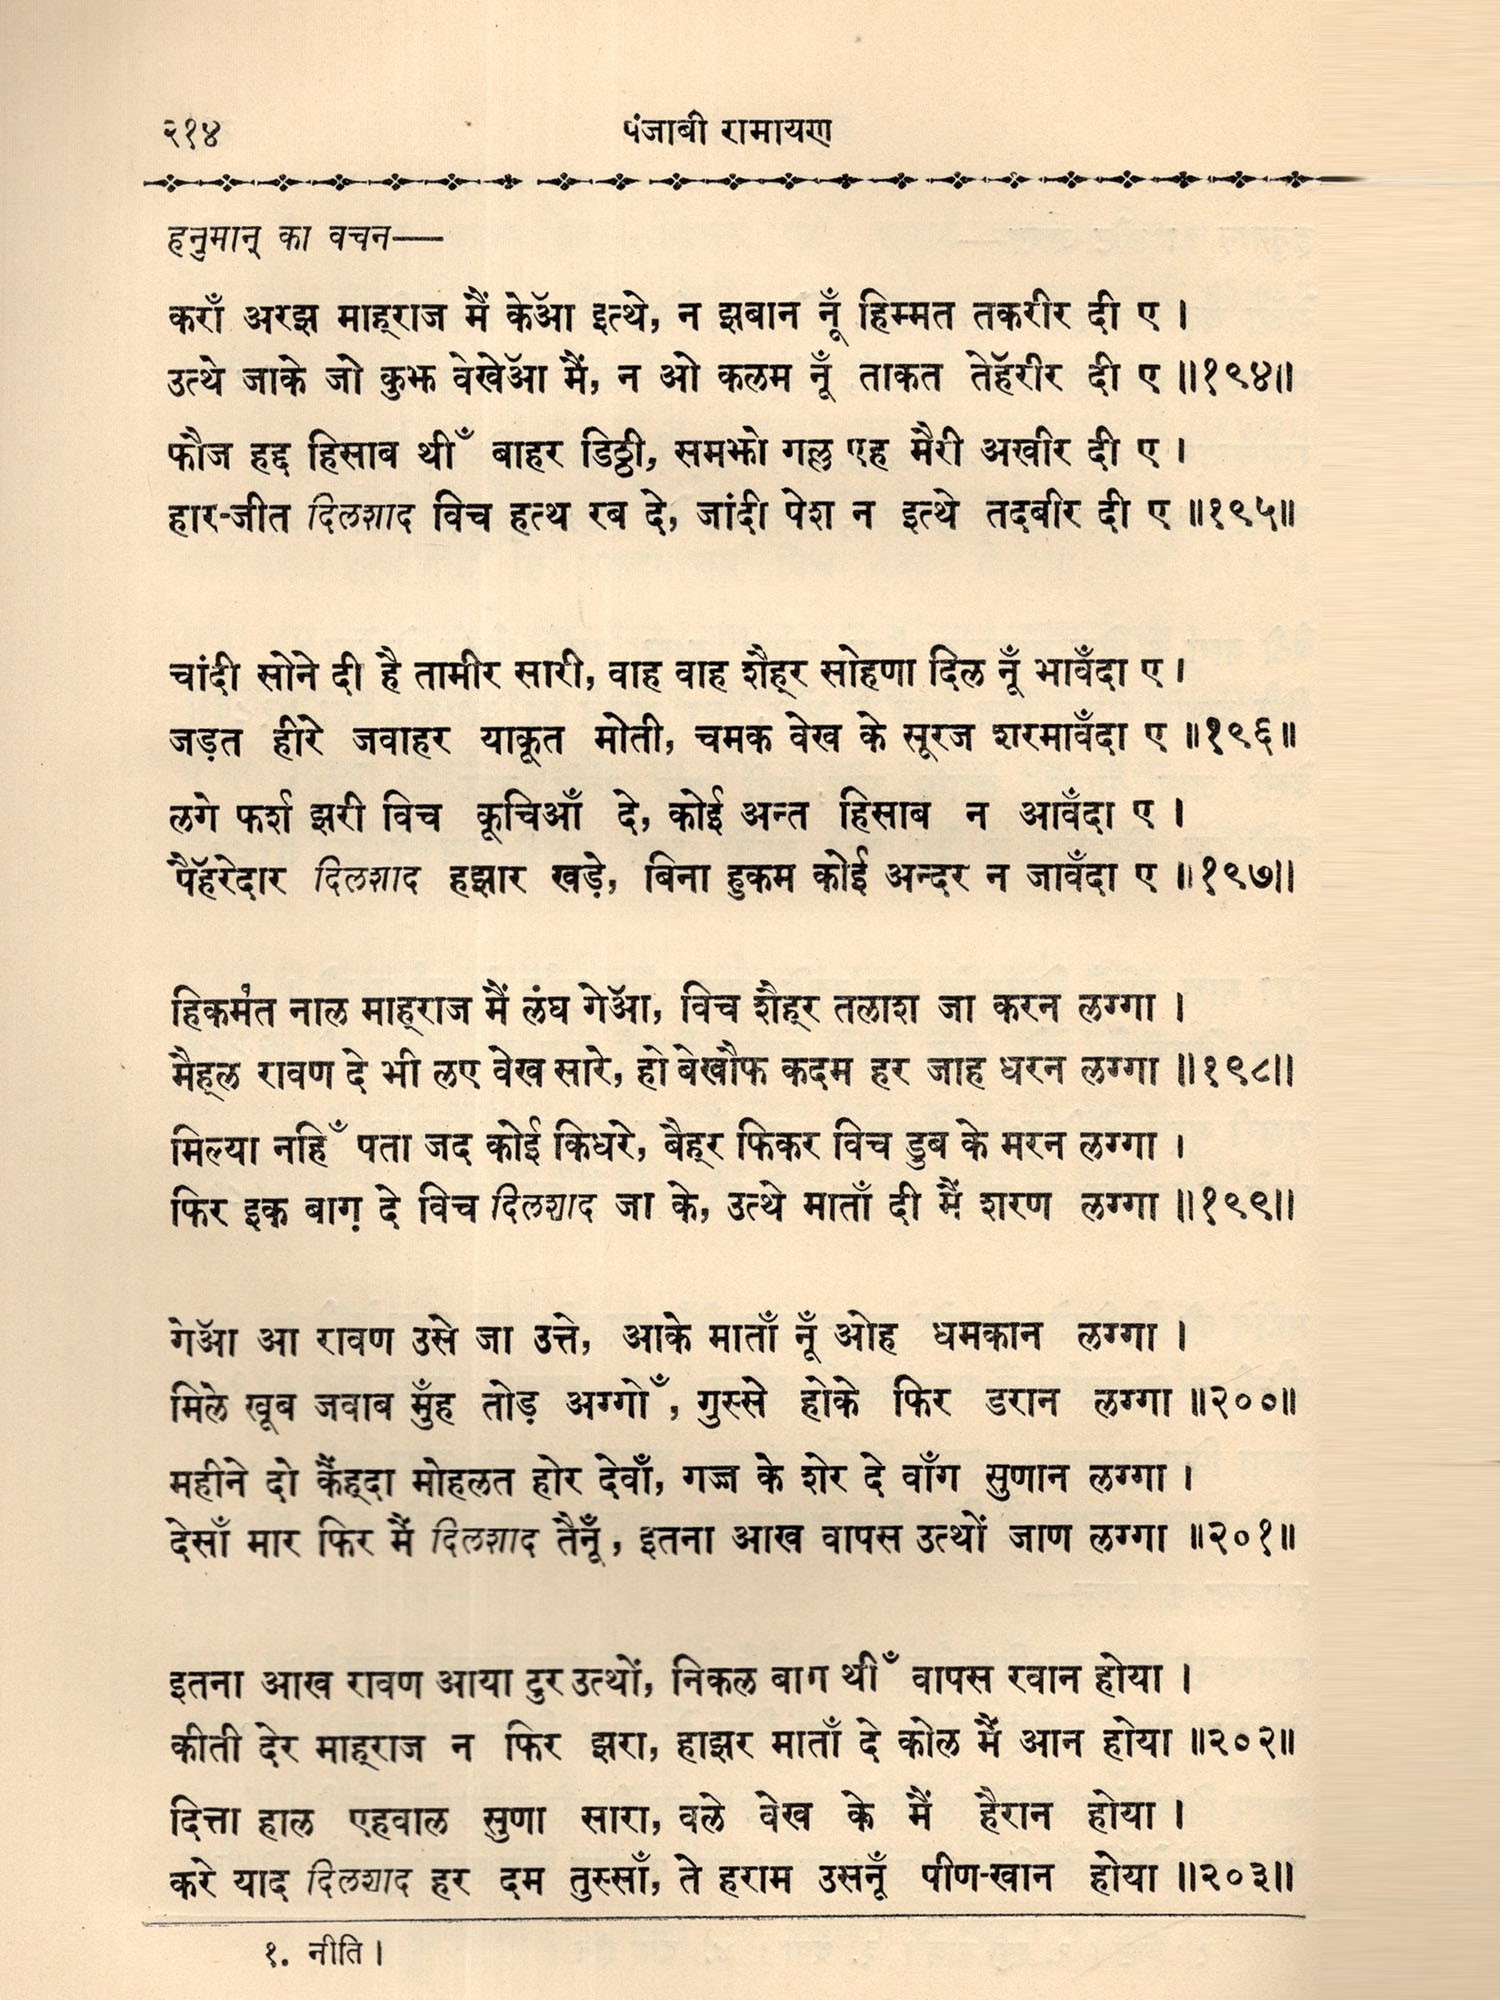 २१४ पंजाबी रामायण
हनुमान् का वचन—
कराँ अरझ माह्राज मैं केॲा इत्थे, न झबान नूँ हिम्मत तकरीर दी ए ।
उत्थे जाके जो कुझ वेखेॲा मैं, न ओ कलम नूँ ताकत तेहॅरीर दी ए ॥१९४॥
फौज हद्द हिसाब थीँ बाहर डिठ्ठी, समझो गल्ल एह मैरी अखीर दी ए ।
हार-जीत दिलशाद विच हत्थ रब दे, जांदी पेश न इत्थे तदबीर दी ए ॥१९५॥
चांदी सोने दी है तामीर सारी, वाह वाह शैह्र सोहणा दिल नूँ भावँदा ए ।
जड़त हीरे जवाहर याकूत मोती, चमक वेख के सूरज शरमावँदा ए ॥१९६॥
लगे फर्श झरी विच कूचिआँ दे, कोई अन्त हिसाब न आवँदा ए ।
पैहॅरेदार दिलशाद हझार खड़े, बिना हुकम कोई अन्दर न जावँदा ए ॥१९७॥
हिकर्मंत नाल माह्राज मैं लंघ गेॲा, विच शैह्र तलाश जा करन लग्गा ।
मैह्ल रावण दे भी लए वेख सारे, हो बेखौफ कदम हर जाह धरन लग्गा ॥१९८॥
मिल्या नहिँ पता जद कोई किधरे, बैह्र फिकर विच डुब के मरन लग्गा ।
फिर इक बाग़ दे विच दिलशाद जा के, उत्थे माताँ दी मैं शरण लग्गा ॥१९९॥
गेॲा आ रावण उसे जा उत्ते, आके माताँ नूँ ओह धमकान लग्गा ।
मिले खूब जवाब मुँह तोड़ अग्गोँ, गुस्से होके फिर डरान लग्गा ॥२००॥
महीने दो कैंह्दा मोहलत होर देवाँ, गज्ज के शेर दे वाँग सुणान लग्गा ।
देसाँ मार फिर मैं दिलशाद तैनूँ, इतना आख वापस उत्थों जाण लग्गा ॥२०१॥
इतना आख रावण आया टुर उत्थों, निकल बाग थीँ वापस रवान होया ।
कीती देर माह्राज न फिर झरा, हाझर माताँ दे कोल मैं आन होया ॥२०२॥
दित्ता हाल एहवाल सुणा सारा, वले वेख के मैं हैरान होया ।
करे याद दिलशाद हर दम तुस्साँ, ते हराम उसनूँ पीण-खान होया ॥२०३॥
१. नीति ।